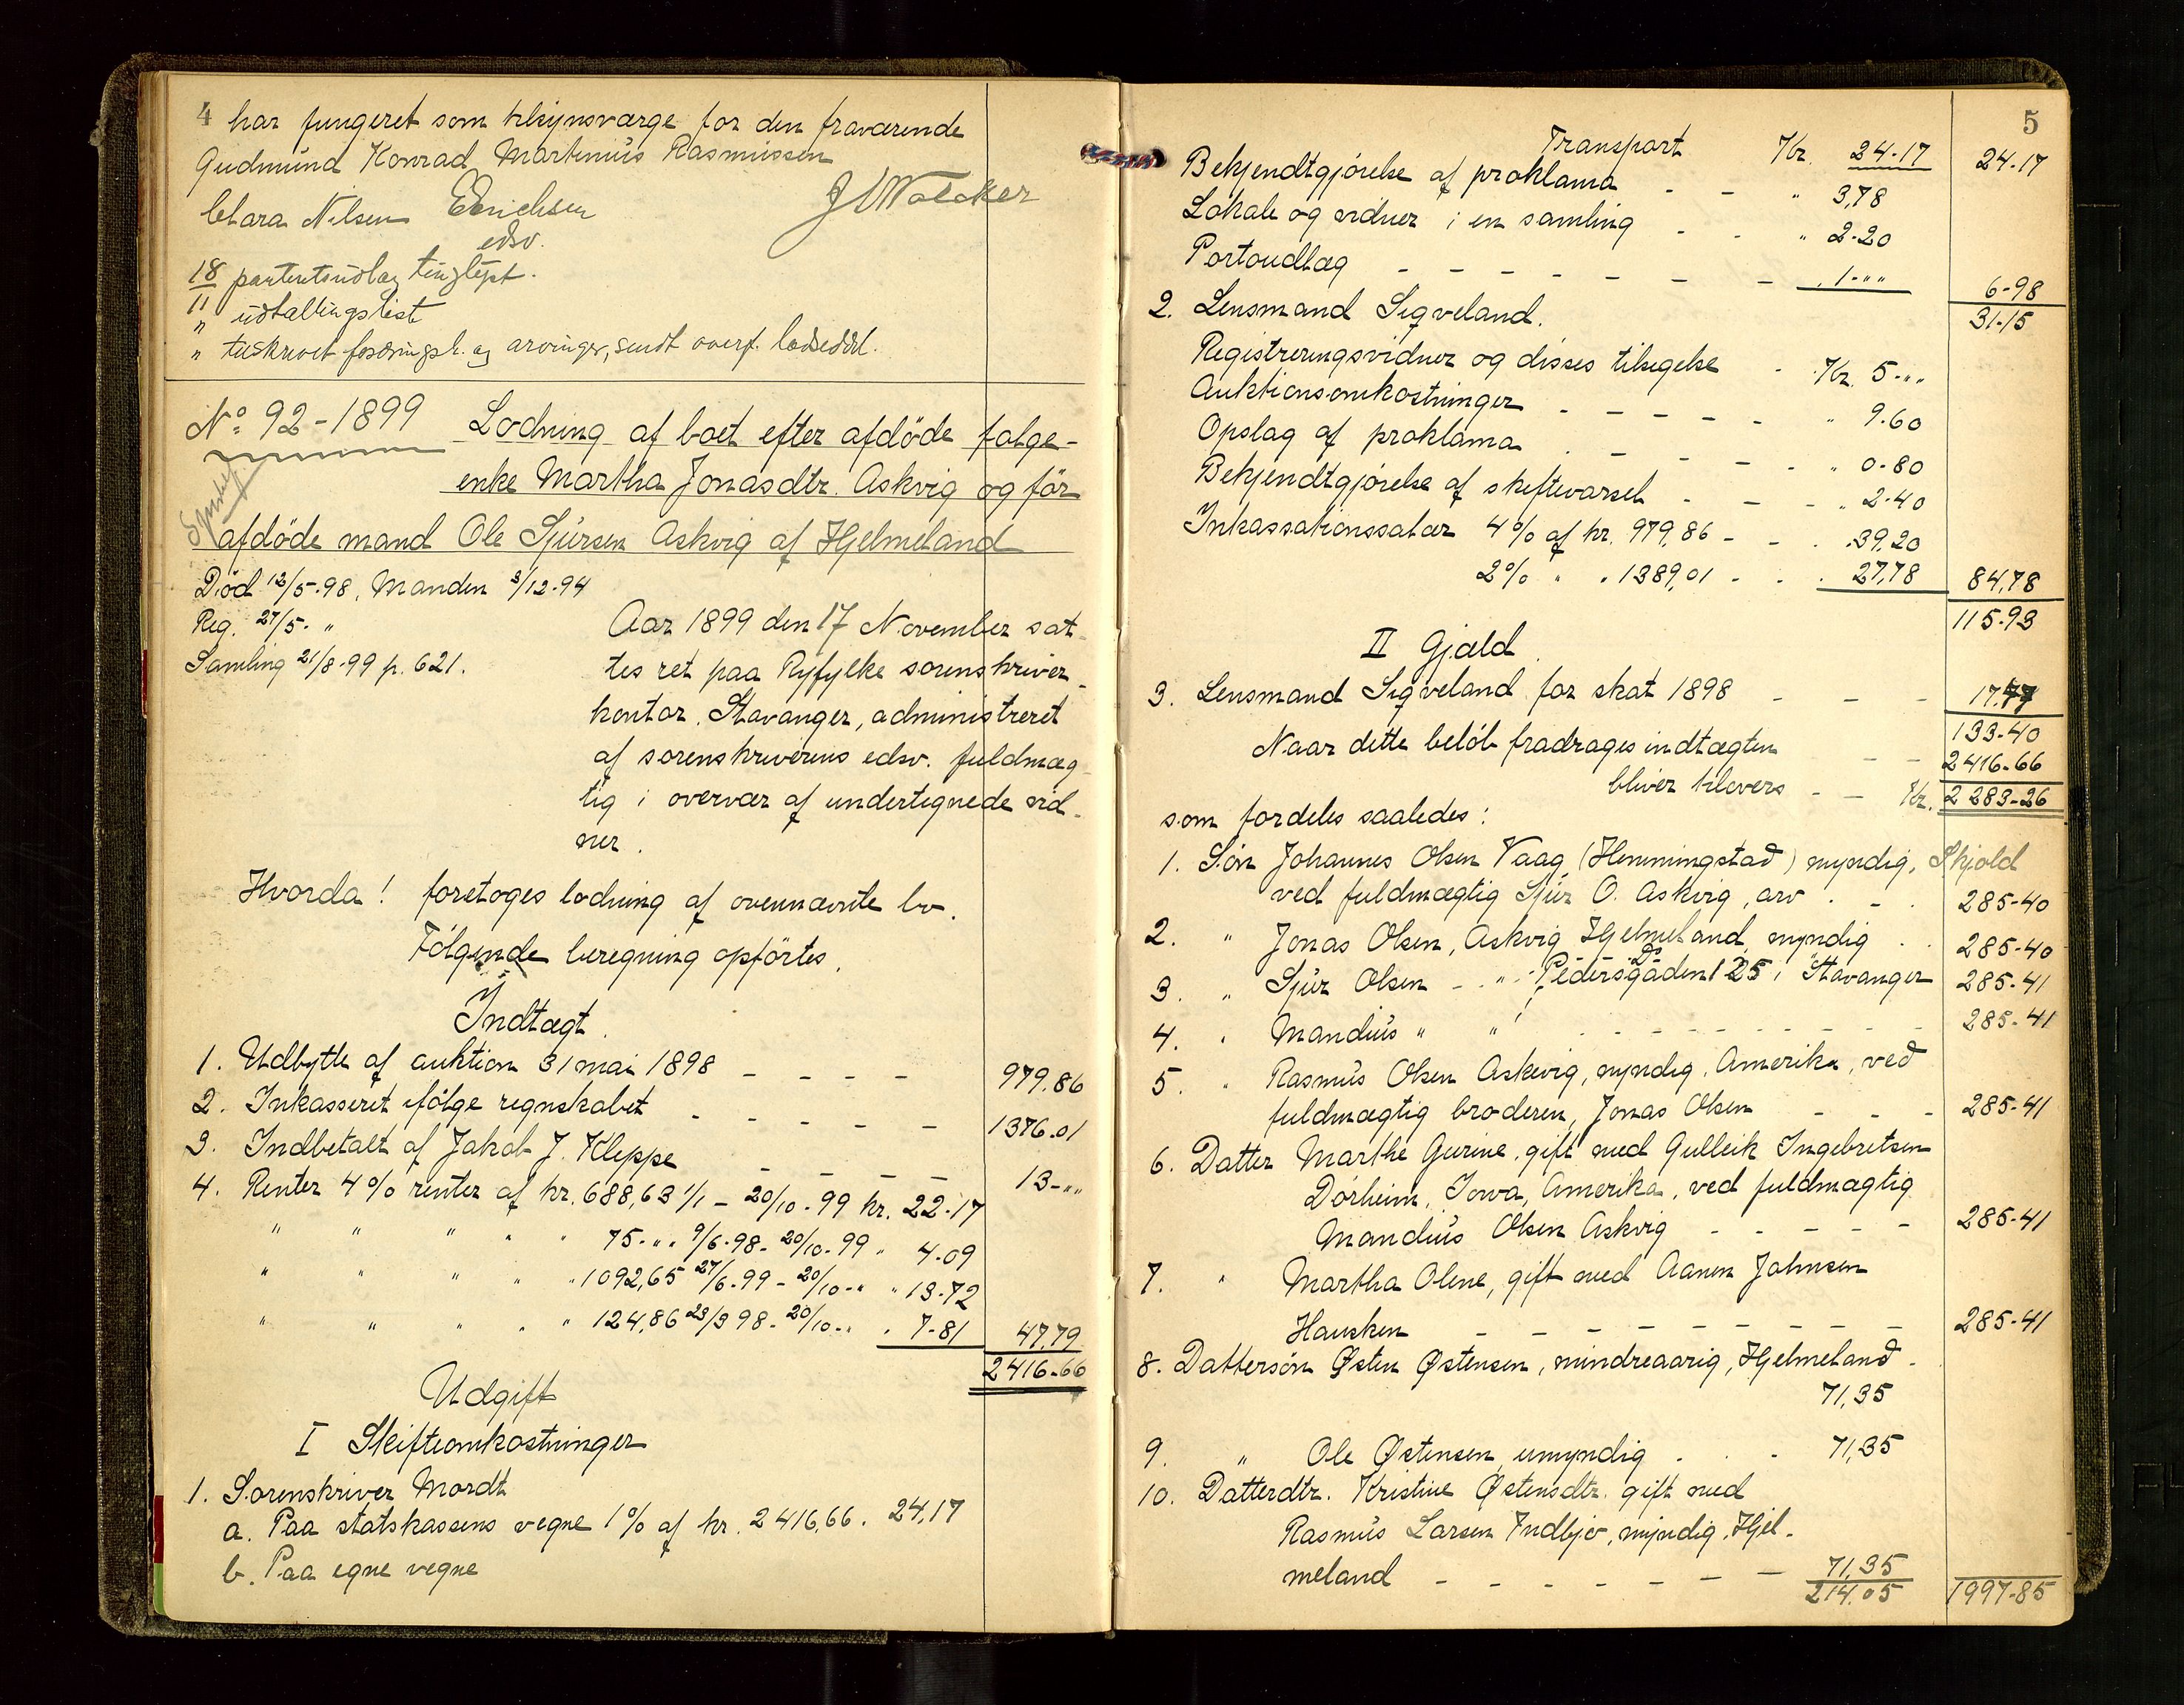 4 har fungeret som tilsynsværge for den fraværende
Gudmund Konrad Martinius Rasmussen
Clara Nilsen EErichsen JWWalcker
edsv.
18/11 panteretsudlæg tinglyst.
" udtallingslist
" tilskrevet fordringsh. og arvinger, sendt overf. lodseddel.
No 92-1899 Lodning af boet efter afdöde folge-
enke Martha Jonasdtr. Askvig og för
afdöde mand Ole Sjursen Askvig af Hjelmeland
Död 12/5-98, Manden 3/12-94
Reg. 27/5- "
Samling 21/8-99 p. 621.
Aar 1899 den 17 November sat-
tes ret paa Ryfylke sorenskriver-
kontor, Stavanger, administreret
af sorenskriverens edsv. fuldmæg-
tig i overvær af undertegnede vid-
ner.
Hvorda! foretoges lodning af ovennævnte bo.
Fölgende beregning opförtes.
Indtægt.
1. Udbytte af auktion 31 mai 1898 - - - - 979.86
2. Inkasseret ifölge regnskabet - - - - - 1376.01
3. Indbetalt af Jakob J. Kleppe - - - - 13-""
4. Renter 4% renter af kr. 688,63 1/1 - 20/10-99 kr. 22-17
" " " " " 75-"" 9/6-98- 20/10-99 " 4-09
" " " " " 1092,65 27/6-99 - 20/10-" " 13-72
" " " " " 124,86 23/3 98- 20/10-" " 7-81 47,79
2416-66
Udgift
I Skifteomkostninger
1. Sorenskriver Mordt
a. Paa statskassens vegne 1% af kr. 2416,66. 24,17
b. Paa egne vegne
5
Transport Kr. 24-17 24-17
Bekjendtgjörelse af proklama - - " 3,78
Lokale og vidner i en samling - - " 2-20
Portoudlæg - - - - - - - 1-"" 6-98
2. Lensmand Sigveland. 31-15
Registreringsvidner og disses tilsigelse - Kr. 5-""
Auktionsomkostninger - - - - - " 9.60
Opslag af proklama - - - - - " 0-80
Bekjendtgjörelse af skiftevarsel - - - " 2-40
Inkassationssalær 4% af kr. 979,86 - - . 39,20
2% " " 1389,01 - - . 27,78 84,78
115-93
II Gjæld.
3. Lensmand Sigveland for skat 1898 - - - 17.47
133-40
Naar dette belöb fradrages indtægten - - 2416-66
bliver tilovers - - Kr. 2283-26
som fordeles saaledes:
1. Sön Johannes Olsen Vaag (Hemmingstad) myndig, Skjold
ved fuldmægtig Sjur O. Askvig, arv . - . 285-40
2. " Jonas Olsen, Askvig Hjelmeland, myndig . . 285-40
3. " Sjur Olsen - " - Pedersgaden 125 i Stavanger 285-41
4. " Mandius " " - - - - - - - - 285-41
5. " Rasmus Olsen Askevig, myndig, Amerika, ved
fuldmægtig broderen, Jonas Olsen - - - 285-41
6. Datter Marthe Gurine, gift med Gulleik Ingebretsen
Dörheim, Iowa, Amerika, ved fuldmægtig
Mandius Olsen Askvig - - - - - 285-41
7. " Martha Olene, gift med Aanen Johnsen
Hausken - - - - - - - - - 285-41
8. Dattersön Østen Østensen, mindreaarig, Hjelmeland -
71,35
9. " Ole Østensen, umyndig . . . 71,35
10. Datterdtr. Kristine Østensdtr. gift med
Rasmus Larsen Indbjo, myndig, Hjel-
meland - - - - - - - 71,35
214.05 1997-85